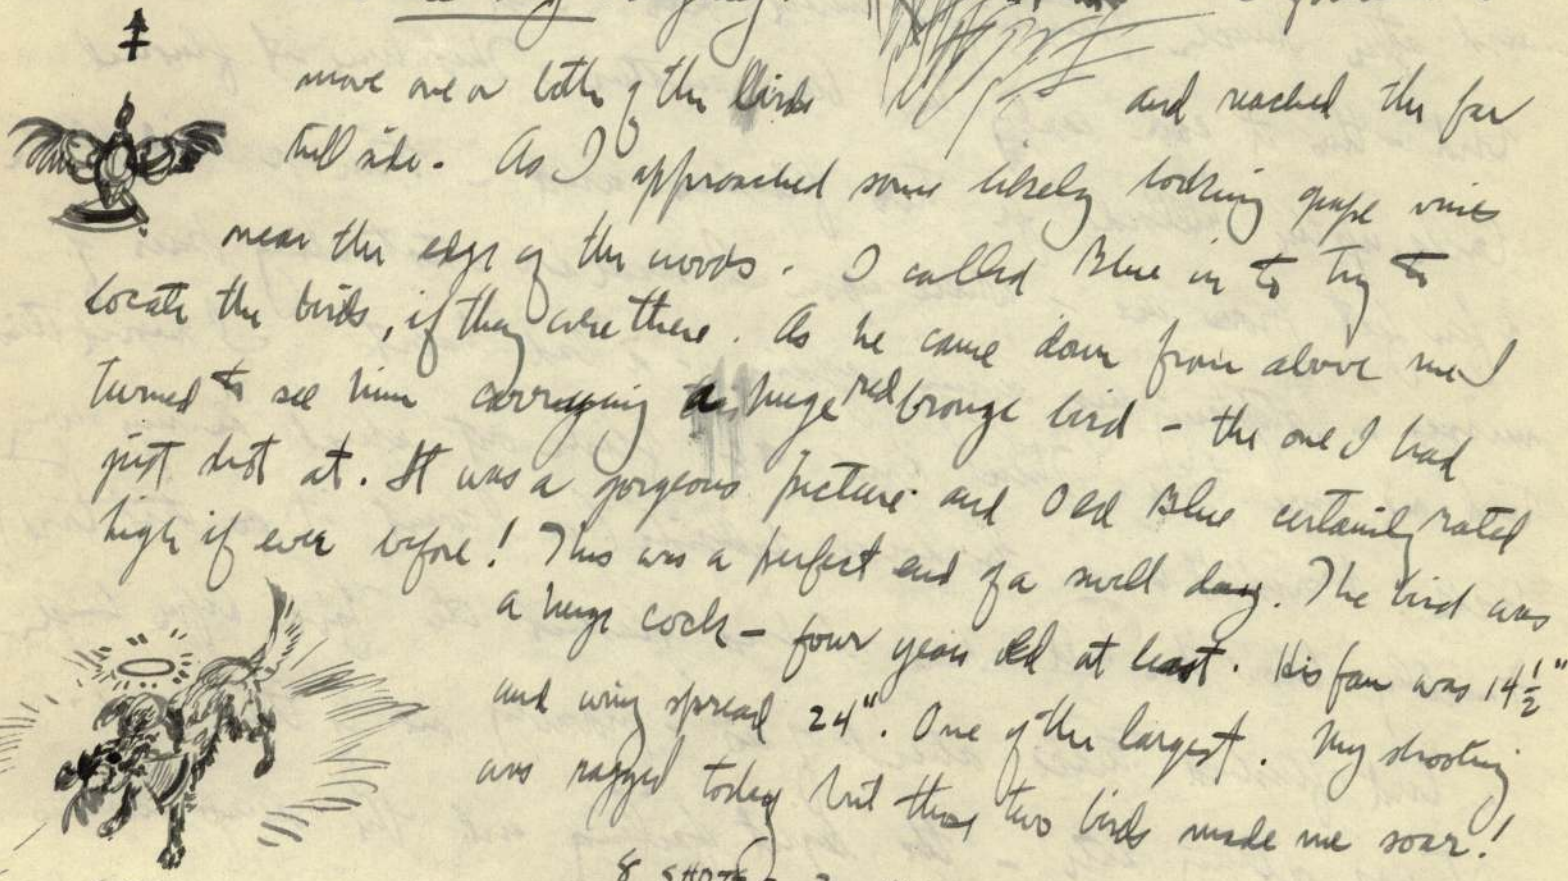 move one or both of the birds and reached the far
hill side. As I approached some likely looking grape vines
near the edge of the woods. I called Blue in to try to
locate the birds, if they were there. As he came down from above me I
turned to see him carrying a huge red bronze bird - the one I had
just shot at. It was a gorgeous picture and Old Blue certainly rated
high if ever before! This was a perfect end of a swell day. The bird was
a huge cock - four years old at least. His fan was 14 1/2"
and wing spread 24". One of the largest. My shooting
was ragged today but those two birds made me soar!
8 SHOTS